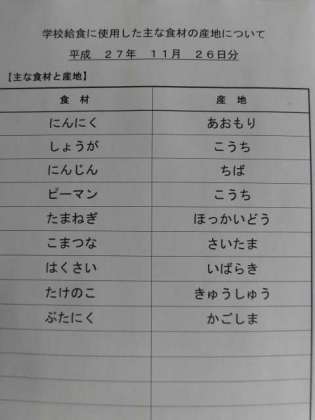 学校給食に使用した主な食材の産地について
平成　２７年　１１月　２６日分
【主な食材と産地】
食　材　産　地
にんにく　あおもり
しょうが　こうち
にんじん　ちば
ピーマン　こうち
たまねぎ　ほっかいどう
こまつな　さいたま
はくさい　いばらき
たけのこ　きゅうしゅう
ぶたにく　かごしま